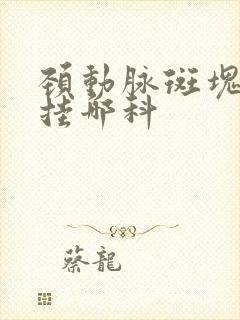 頚動脉斑塊
挂那科
蔡龍